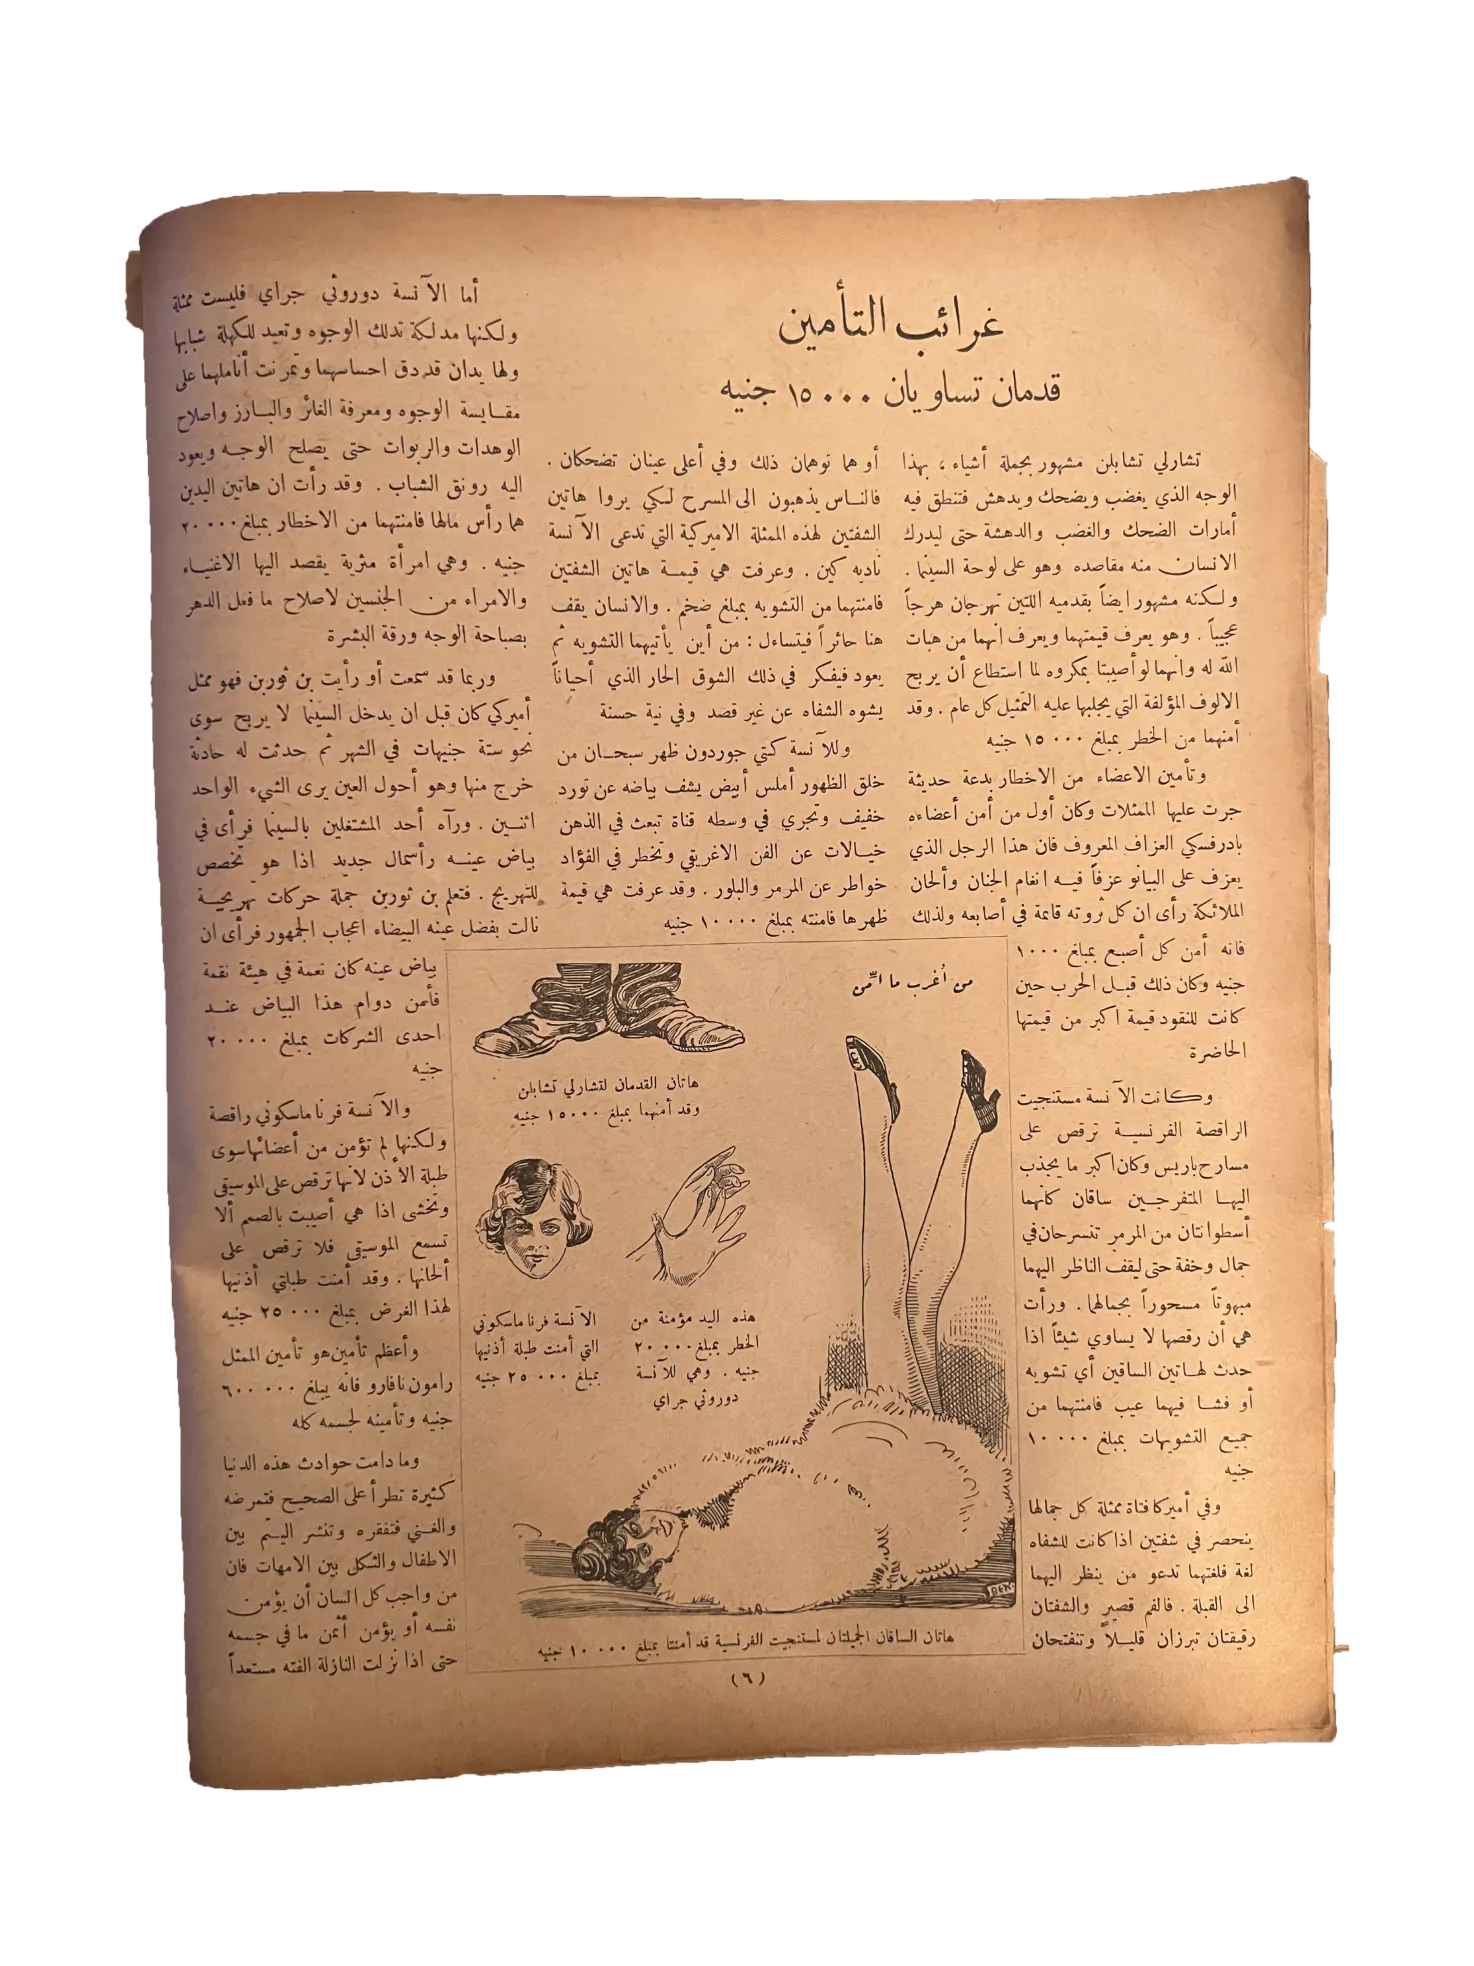 غرائب التأمين
قدمان تساويان ١٥٠٠٠ جنيه
تشارلي تشابلن مشهور بجملة أشياء ، بهذا
الوجه الذي يغضب ويضحك ويدهش فتنطق فيه
أمارات الضحك والغضب والدهشة حتى ليدرك
الانسان منه مقاصده وهو على لوحة السينما .
ولكنه مشهور ايضاً بقدميه اللتين تهرجان هرجاً
عجيباً . وهو يعرف قيمتهما ويعرف انهما من هبات
الله له وانهما لو أصيبتا بمكروه لما استطاع أن يربح
الالوف المؤلفة التي يجلبها عليه التمثيل كل عام . وقد
أمنهما من الخطر بمبلغ ١٥٠٠٠ جنيه
وتأمين الاعضاء من الاخطار بدعة حديثة
جرت عليها الممثلات وكان أول من أمن أعضاءه
بادرفسكي العزاف المعروف فان هذا الرجل الذي
يعزف على البيانو عزفاً فيه انغام الجنان وألحان
الملائكة رأى ان كل ثروته قائمة في أصابعه ولذلك
فانه أمن كل أصبع بمبلغ ١٠٠٠
جنيه وكان ذلك قبل الحرب حين
كانت للنقود قيمة اكبر من قيمتها
الحاضرة
وكانت الآنسة مستنجيت
الراقصة الفرنسية ترقص على
مسارح باريس وكان اكبر ما يجذب
اليها المتفرجين ساقان كأنهما
أسطوانتان من المرمر تنسرحان في
جمال وخفة حتى ليقف الناظر اليهما
مبهوتاً مسحوراً بجمالهما . ورأت
هي أن رقصها لا يساوي شيئاً اذا
حدث لهاتين الساقين أي تشويه
أو فشا فيهما عيب فامنتهما من
جميع التشويهات بمبلغ ١٠٠٠٠
جنيه
وفي أميركا فتاة ممثلة كل جمالها
ينحصر في شفتين اذا كانت للشفاه
لغة فلغتهما تدعو من ينظر اليهما
الى القبلة . فالفم قصير والشفتان
رقيقتان تبرزان قليلاً وتنفتحان
أو هما توهمان ذلك وفي أعلى عينان تضحكان .
فالناس يذهبون الى المسرح لكي يروا هاتين
الشفتين لهذه الممثلة الاميركية التي تدعى الآنسة
ناديه كين . وعرفت هي قيمة هاتين الشفتين
فامنتهما من التشويه بمبلغ ضخم . والانسان يقف
هنا حائراً فيتساءل : من أين يأتيهما التشويه ثم
يعود فيفكر في ذلك الشوق الحار الذي أحياناً
يشوه الشفاه عن غير قصد وفي نية حسنة
وللآنسة كتي جوردون ظهر سبحان من
خلق الظهور أملس أبيض يشف بياضه عن تورد
خفيف وتجري في وسطه قناة تبعث في الذهن
خيالات عن الفن الاغريقي وتخطر في الفؤاد
خواطر عن المرمر والبلور . وقد عرفت هي قيمة
ظهرها فامنته بمبلغ ١٠٠٠٠ جنيه
من أغرب ما امّن
هاتان القدمان لتشارلي تشابلن
وقد أمنهما بمبلغ ١٥٠٠٠ جنيه
هذه اليد مؤمنة من
الخطر بمبلغ ٢٠٠٠٠
جنيه . وهي للآنسة
دوروثي جراي
الآنسة فرنا ماسكوني
التي أمنت طبلة أذنيها
بمبلغ ٢٥٠٠٠ جنيه
BEN
هاتان الساقان الجميلتان لمستنجيت الفرنسية قد أمنتا بمبلغ ١٠٠٠٠ جنيه
أما الآنسة دوروثي جراي فليست ممثلة
ولكنها مدلكة تدلك الوجوه وتعيد للكهلة شبابها
ولها يدان قد دق احساسهما وتمرنت أناملهما على
مقايسة الوجوه ومعرفة الغائر والبارز واصلاح
الوهدات والربوات حتى يصلح الوجه ويعود
اليه رونق الشباب . وقد رأت ان هاتين اليدين
هما رأس مالها فامنتهما من الاخطار بمبلغ ٢٠٠٠٠
جنيه . وهي امرأة مثرية يقصد اليها الاغنياء
والامراء من الجنسين لاصلاح ما فعل الدهر
بصباحة الوجه ورقة البشرة
وربما قد سمعت أو رأيت بن ثوربن فهو ممثل
أميركي كان قبل ان يدخل السينما لا يربح سوى
نحو ستة جنيهات في الشهر ثم حدثت له حادثة
خرج منها وهو أحول العين يرى الشيء الواحد
اثنين . ورآه أحد المشتغلين بالسينما فرأى في
بياض عينه رأسمال جديد اذا هو تخصص
للتهريج . فتعلم بن ثوربن جملة حركات تهريجية
نالت بفضل عينه البيضاء اعجاب الجمهور فرأى ان
بياض عينه كان نعمة في هيئة نقمة
فأمن دوام هذا البياض عند
احدى الشركات بمبلغ ٢٠٠٠٠
جنيه
والآنسة فرنا ماسكوني راقصة
ولكنها لم تؤمن من أعضائها سوى
طبلة الأذن لانها ترقص على الموسيقى
وتخشى اذا هي أصيبت بالصمم ألا
تسمع الموسيقى فلا ترقص على
ألحانها . وقد أمنت طبلتي أذنيها
لهذا الغرض بمبلغ ٢٥٠٠٠ جنيه
وأعظم تأمين هو تأمين الممثل
رامون نافارو فانه يبلغ ٦٠٠٠٠٠
جنيه وتأمينه لجسمه كله
وما دامت حوادث هذه الدنيا
كثيرة تطرأ على الصحيح فتمرضه
والغني فتفقره وتنشر اليتم بين
الاطفال والثكل بين الامهات فان
من واجب كل انسان أن يؤمن
نفسه أو يؤمن أثمن ما في جسمه
حتى اذا نزلت النازلة الفته مستعداً
(٦)